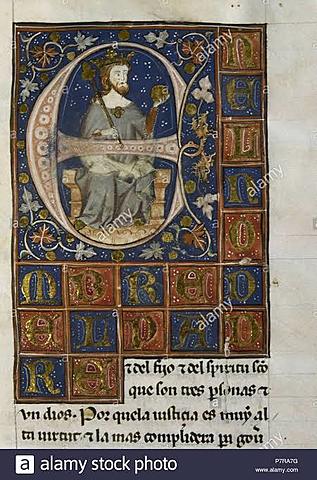 E
N
E
L
N
O
M B R E D
E L P A D
R E
⁊ del fijo ⁊ del spiritu sco
que son tres psonas ⁊
vn dios. Por que la iusticia es muy al
ta virtut ⁊ la mas complidera pa gou
alamy
alamy
alamy
alamy
alamy
alamy stock photo
P7RA7G
www.alamy.com